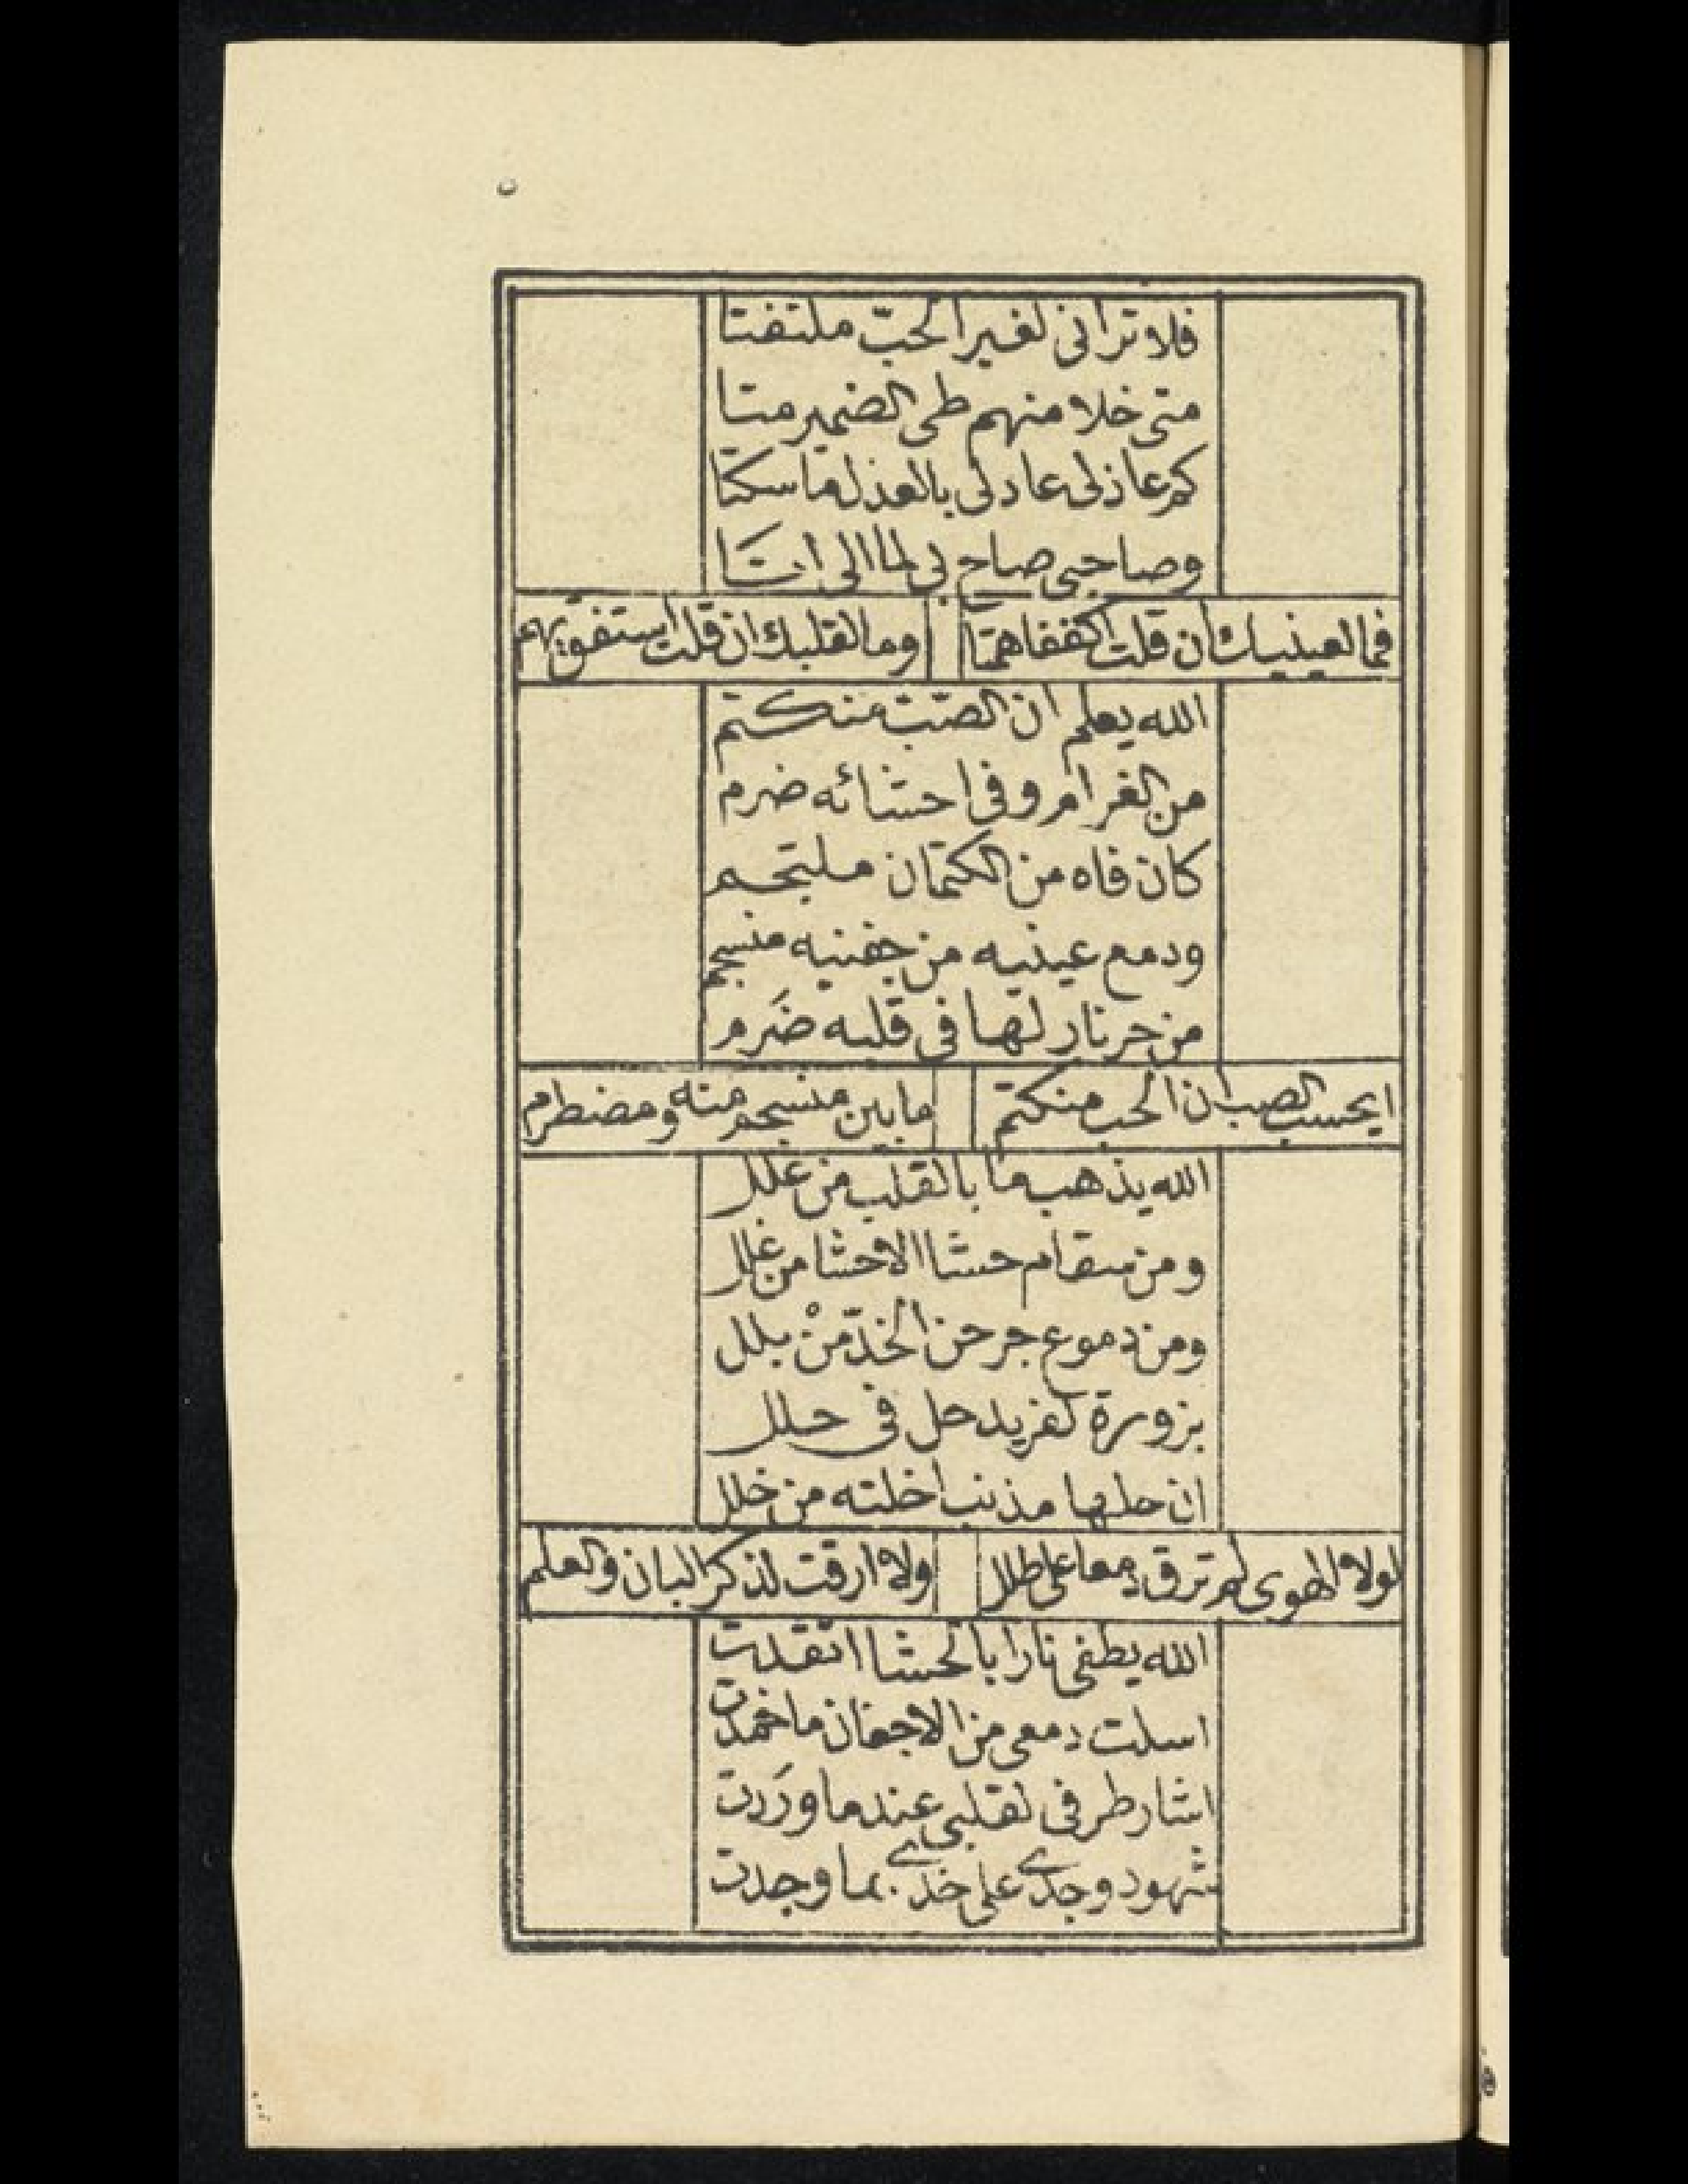 فلا ترانى لغير الحبّ ملتفتا
متى خلا منهم طى الضمير متا
كم عاذلى عادلى بالعذل ما سكتا
وصاحبى صاح بى لما الى اتَا
فما لعينيك ان قلت اكففا همتا وما لقلبك ان قلت استفق يهم
الله يعلم ان الصّبّ منكتم
من الغرام وفى احشائه ضرم
كان فاه من الكتمان ملتجم
ودمع عينيه من جفنيه منسجم
من حر نار لها فى قلبه ضَرم
ايحسب الصب ان الحب منكتم ما بين منسجم منه ومضطرم
الله يذهب ما بالقلب من علل
ومن سقام حشا الاحشا من غلل
ومن دموع جرحن الخدّ منْ بلل
بزورة لفريد حل فى حلل
ان حلها مذنب اخلته من خلل
لولا الهوى لم ترق دمعا على طلل ولا ارقت لذكر البان والعلم
الله يطفى نارا بالحشا اتقدت
اسلت دمعى من الاجفان ما خمدت
اشار طرفى لقلبى عندما ورَدت
شهود وجدى على خدى بما وجدت